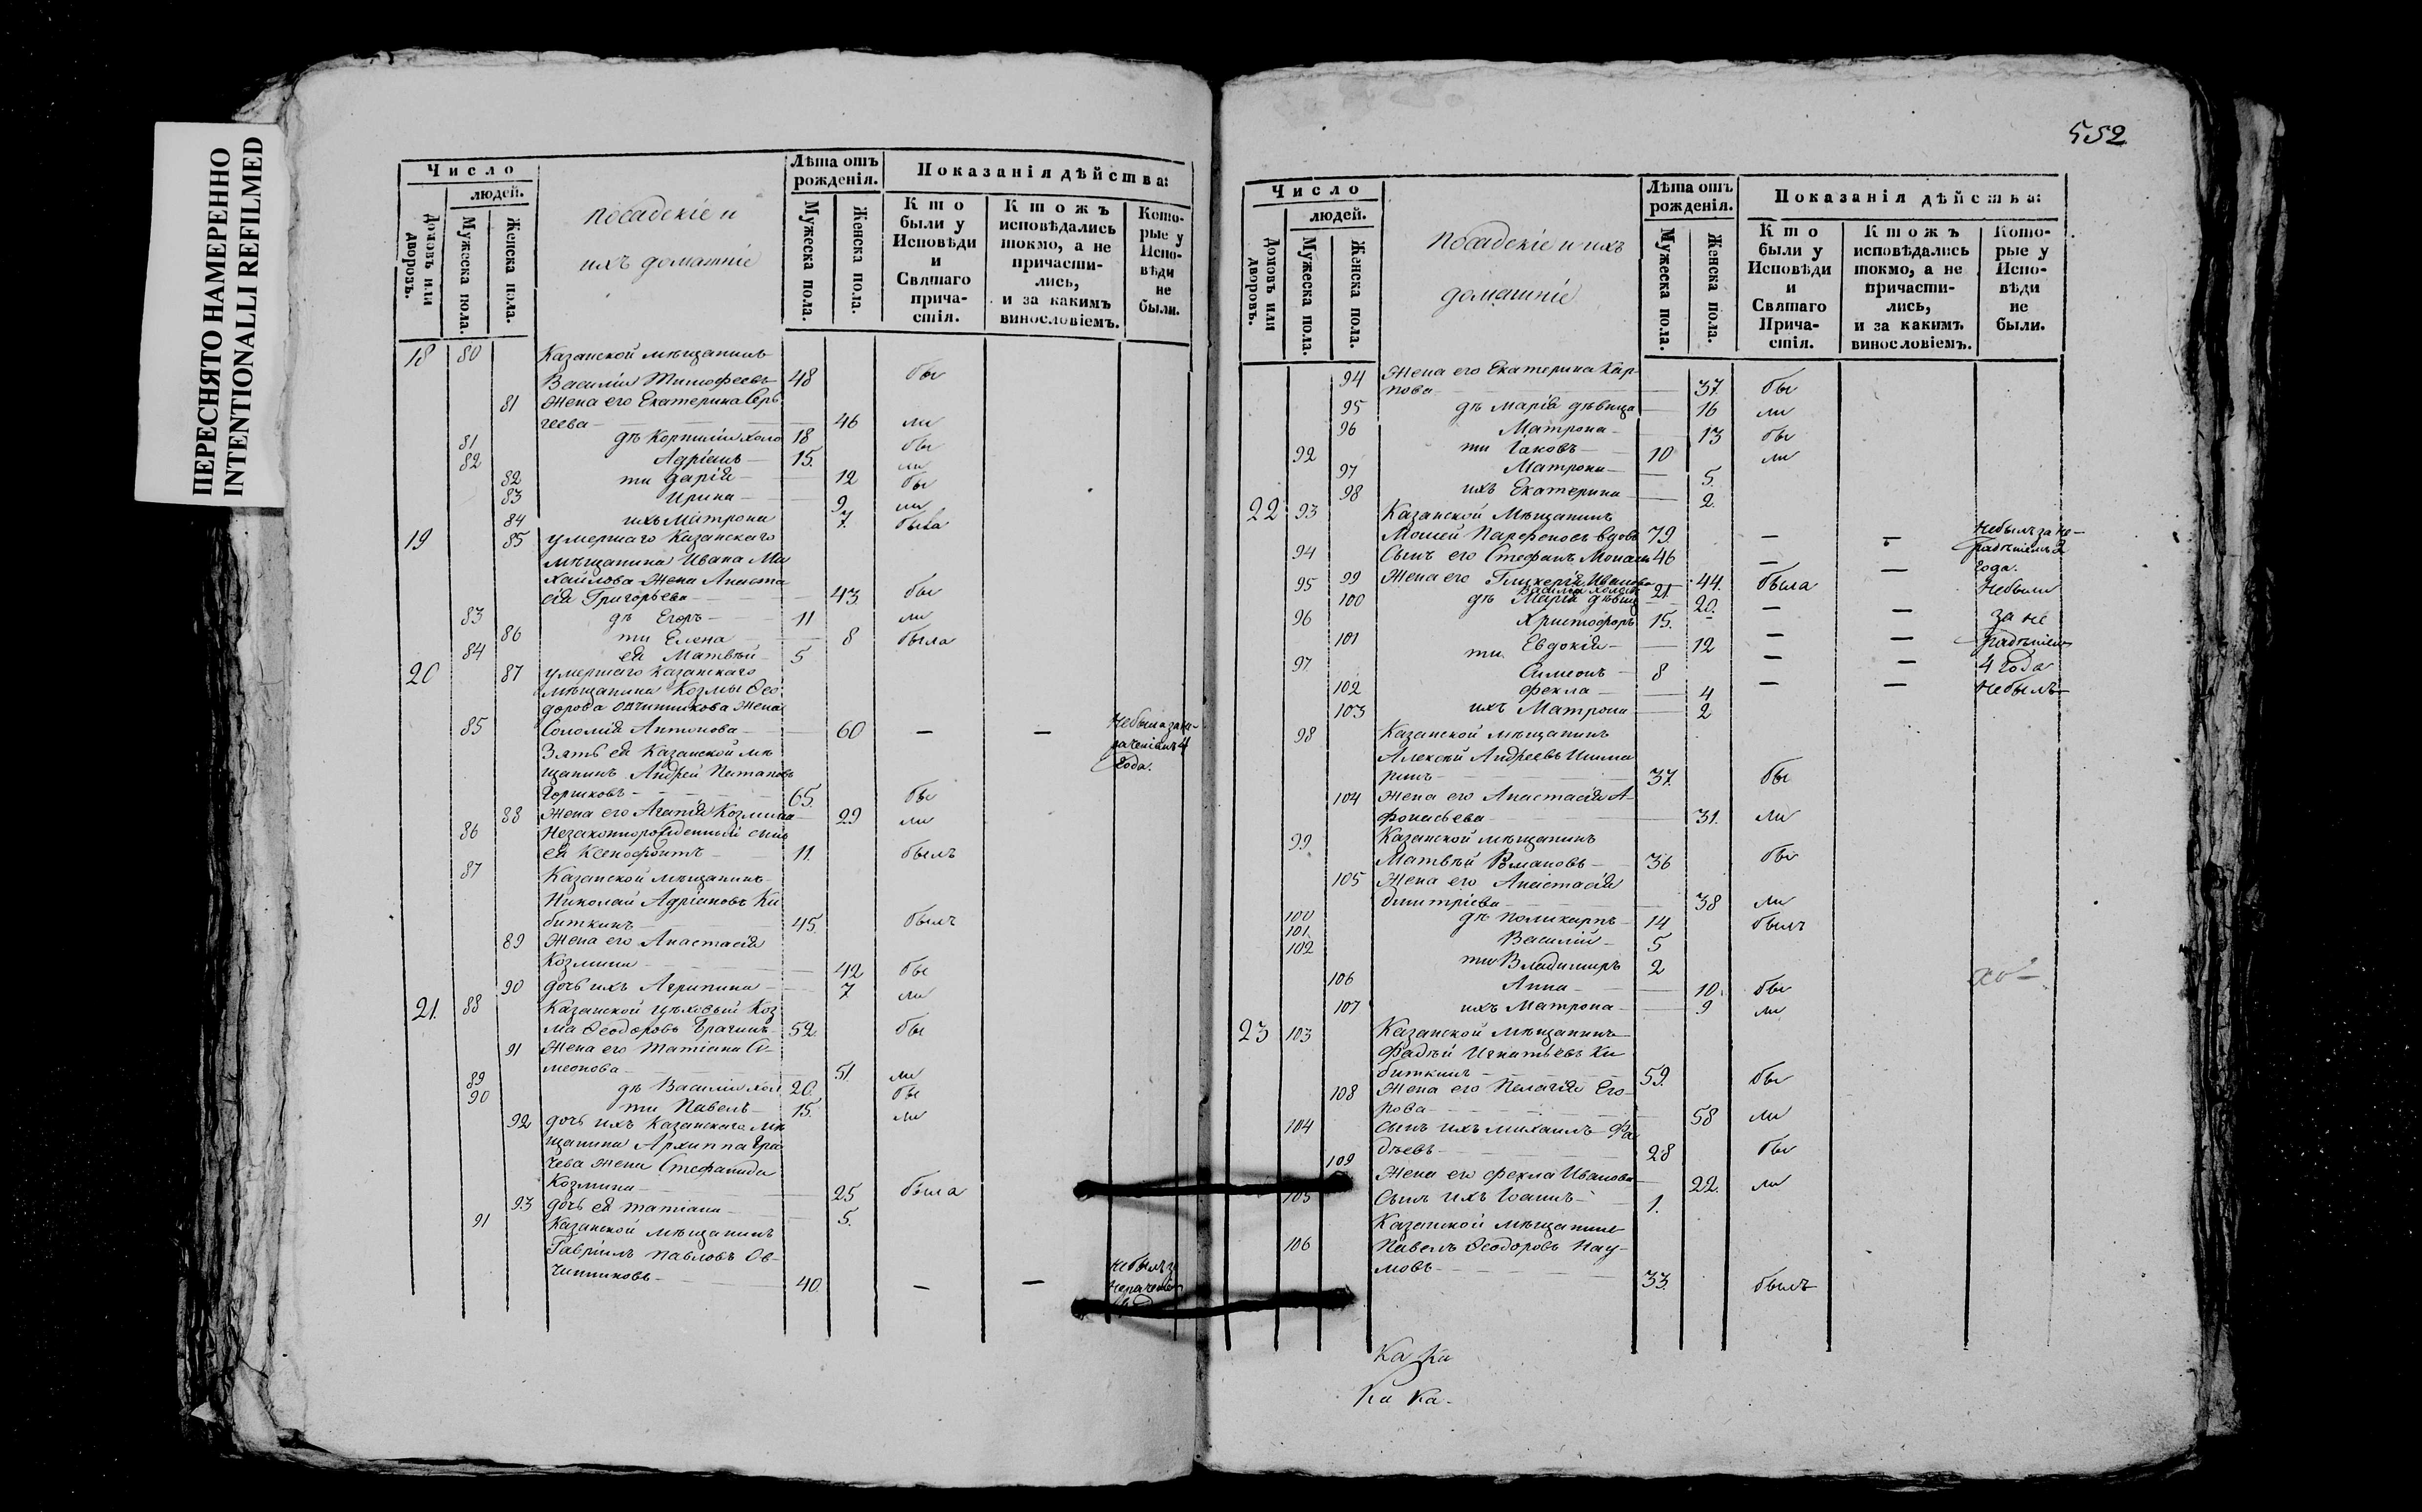 ПЕРЕСНЯТО НАМЕРЕННО
INTENTIONALLI REFILMED
Число
людей.
Домовъ или дворовъ.
Мужеска пола.
Женска пола.
Посадскіе и
ихъ домашніе
Лѣта отъ рожденія.
Мужеска пола.
Женска пола.
Показанія дѣйства:
Кто были у Исповѣди и Святаго причастія.
Ктожъ исповѣдались токмо, а не причастились, и за какимъ винословіемъ.
Которые у Исповѣди не были.
18 80 Казанской мѣщанинъ
Василій Тимофеевъ 48 бы
81 Жена его Екатерина Сер
геева 46 ли
81 дѣ Корнилій холо 18 бы
82 Адріанъ 15. ли
82 ти Дарія 12 бы
83 Ирина 9 ли
84 ихъ Матрона 7. была
19 85 умершаго Казанскаго
мѣщанина Ивана Ми
хайлова Жена Анаста
сія Григорьева 43 бы
83 дѣ Егоръ 11 ли
86 ти Елена 8 была
84 ея Матвѣй 5
20 87 умершаго Казанскаго
мѣщанина Козмы Ѳео
дорова Овчинникова Жена
Соломія Антонова 60 — — Небыла за не-
85 Зять ея Казанской мѣ
щанинъ Андрей Потаповъ года.
65 бы
88 Жена его Агапія Козмина 29 ли
86 Незаконнорожденный сынъ
ея Ксенофонтъ 11. былъ
87 Казанской мѣщанинъ
Николай Адріановъ Ки
биткинъ 45. былъ
89 Жена его Анастасія
Козмина 42 бы
90 дочь ихъ Агрипина 7 ли
21. 88 Казанской цѣховый Коз
ма Ѳеодоровъ 52. бы
91 Жена его Татіана Си
меонова 51. ли
89 дѣ Василій хол 20. бы
90 ти Павелъ 15. ли
92 дочь ихъ Казанскаго мѣ
щанина Архиппа Гра
чева жена Стефанида
Козмина 25 была
93 дочь ея Татіана 5.
91 Казанской мѣщанинъ
Гавріилъ Павловъ Ов-
чинниковъ 40. — — Небылъ
552
Число
людей.
Домовъ или дворовъ.
Мужеска пола.
Женска пола.
Посадскіе и ихъ
домашніе
Лѣта отъ рожденія.
Мужеска пола.
Женска пола.
Показанія дѣйства:
Кто были у Исповѣди и Святаго Причастія.
Ктожъ исповѣдались токмо, а не причастились, и за какимъ винословіемъ.
Которые у Исповѣди не были.
94 Жена его Екатерина Кар-
пова 37. бы
95 дѣ Марія дѣвица 16 ли
96 Матрона 13 бы
92 ти Іаковъ 10 ли
97 Матрона 5.
98 ихъ Екатерина 2.
22 93 Казанской Мѣщанинъ
Моисей Парфеновъ вдовъ 79. — — Небылъ за не-
94 Сынъ его Стефанъ 46 — — радѣніемъ 2 года.
99 Жена его Гликерія Иванова 44. была
95 Василій холост 21. — — Небыли
100 дѣ Марія дѣвиц 20. за не
96 Христофоръ 15. — — радѣніем
101 ти Евдокія 12 — — 4 года
97. Симеонъ 8 — — Небылъ
102 Фекла 4
103 ихъ Матрона 2
98 Казанской мѣщанинъ
Алексѣй Андреевъ Шима
ринъ 37. бы
104 Жена его Анастасія А-
фонасьева 31. ли
99 Казанской мѣщанинъ
Матвѣй Романовъ 36 бы
105 Жена его Анастасія
Дмитріева 38 ли
100 дѣ Поликарпъ 14 былъ
101. Василій 5
102 ти Владимиръ 2
106 Анна 10. бы
107 ихъ Матрона 9 ли
23 103 Казанской Мѣщанинъ
Фадѣй Игнатьевъ Ки
биткинъ 59. бы
108 Жена его Пелагія Его-
рова 58 ли
104 Сынъ ихъ Михаилъ Фа
дѣевъ 28 бы
109 Жена его Фекла Иванова 22. ли
105 Сынъ ихъ Іоаннъ 1.
Казанской мѣщанинъ
106 Павелъ Ѳеодоровъ Нау-
мовъ 33. былъ